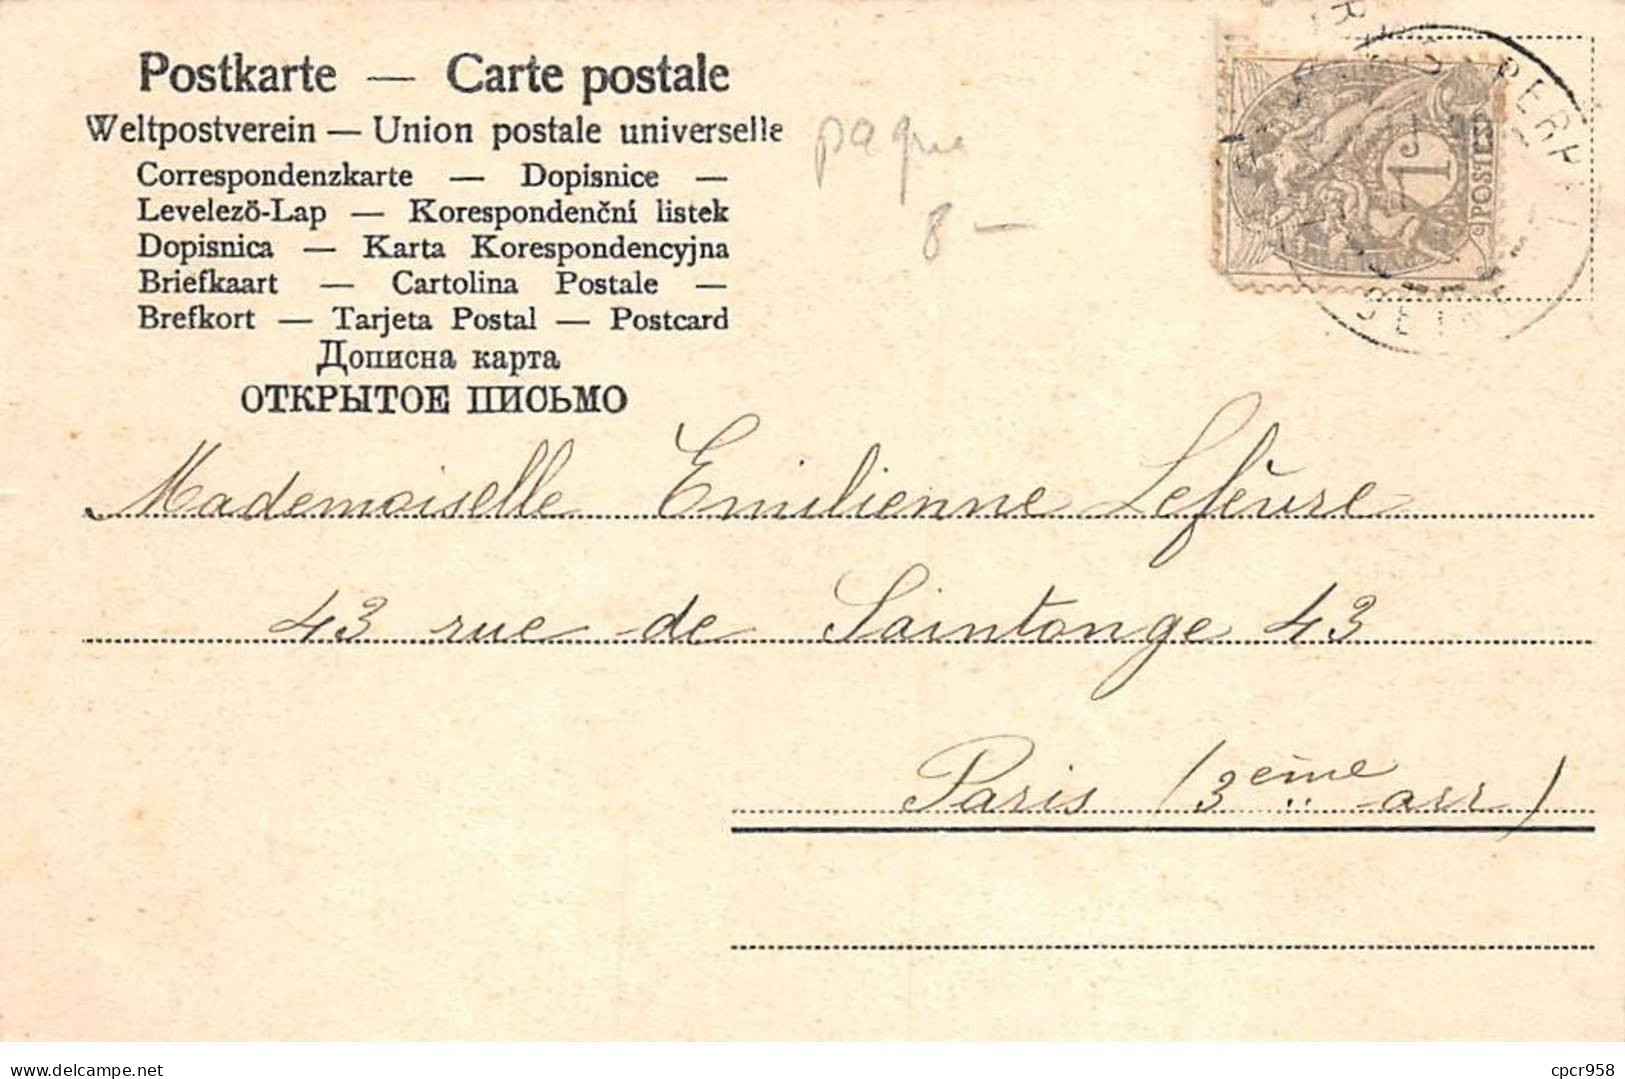 Postkarte — Carte postale
Weltpostverein — Union postale universelle
Correspondenzkarte — Dopisnice —
Levelezö-Lap — Korespondenční listek
Dopisnica — Karta Korespondencyjna
Briefkaart — Cartolina Postale —
Brefkort — Tarjeta Postal — Postcard
Дописна карта
ОТКРЫТОЕ ПИСЬМО
8 —
1
POSTES
SEINE
Mademoiselle Emilienne Lefèvre
43 rue de Saintonge 43
Paris (3ème arr)
www.delcampe.net
cpcr958